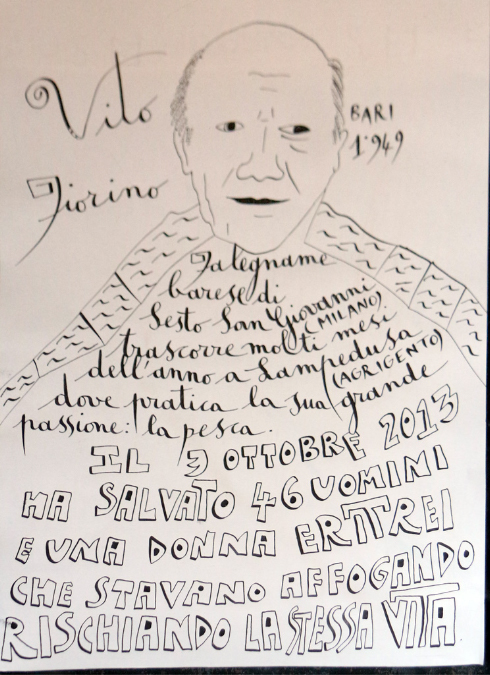 Vito
BARI
1949
Fiorino
Falegname
barese di
Sesto San Giovanni
(MILANO)
trascorre molti mesi
dell'anno a Lampedusa
(AGRIGENTO)
dove pratica la sua grande
passione: la pesca.
IL 3 OTTOBRE 2013
HA SALVATO 46 UOMINI
E UNA DONNA ERITREI
CHE STAVANO AFFOGANDO
RISCHIANDO LA STESSA VITA.